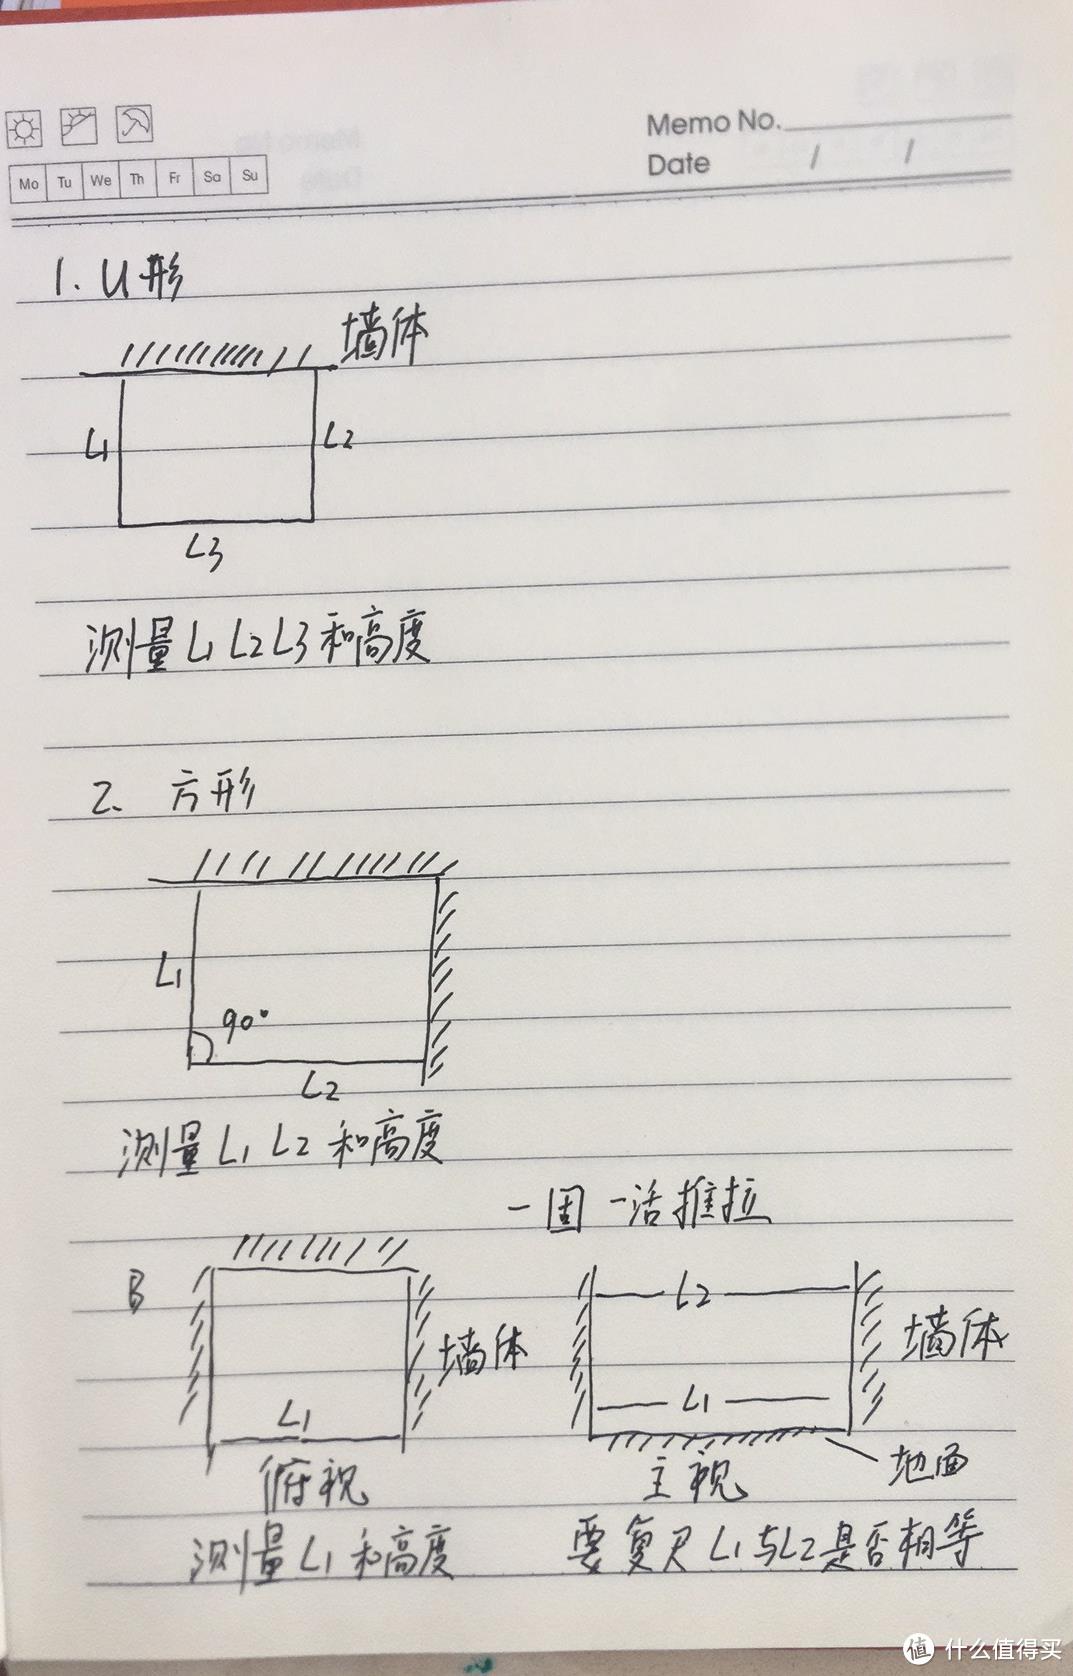 Memo No.
Date / /
Mo Tu We Th Fr Sa Su
1. U形
墙体
L1
L2
L3
测量L1 L2 L3和高度
2、方形
L1
90°
L2
测量L1 L2 和高度
一固一活推拉
B
L2
墙体
墙体
L1
L1
地面
俯视
主视
测量L1和高度
要复尺L1与L2是否相等
值 什么值得买